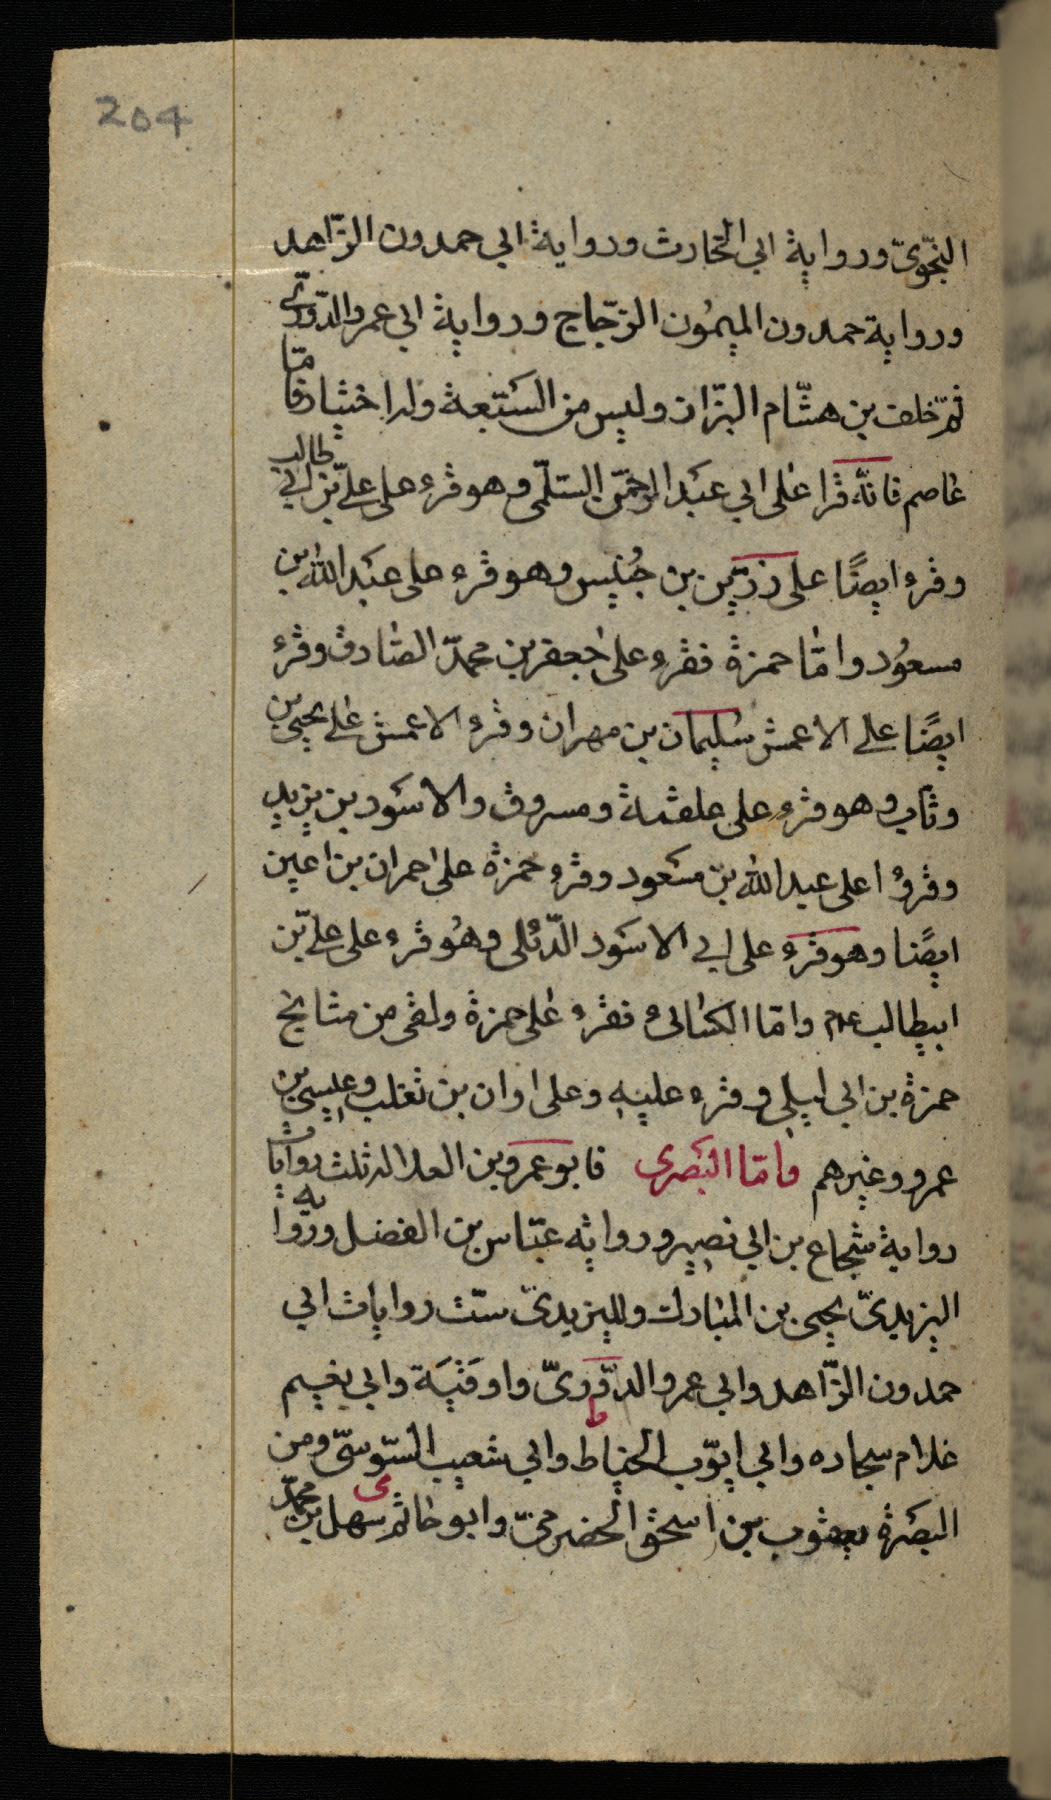 204
النحّويّ ورواية ابي الحارث ورواية ابي حمدون الزّاهد
ورواية حمدون الميمُون الزجّاج ورواية ابي عمر والدّوريّ
ثمّ خلف بن هشّام البزّاز وليس من السّبعة وله اختيار فامّا
عاصم فانّه قرا على ابي عبد الرحمن السّلمّى وهو قرء على علىّ بن ابي طالب
وقرء ايضًا على زرّ بن حُبيس وهو قرء على عبد الله بن
مسعوُد وامّا حمزة فقرء على جعفر بن محمّد الصّادق وقرء
ايضًا على الاعمش سليمان بن مهران وقرء الاعمش على يحيى بن
وثاب وهو قرء على علقمة ومسروق والاسود بن يزيد
وقرؤا على عبد الله بن مسعود وقرء حمزة على حمران بن اعين
ايضًا وهو قرء على ابي الاسود الدّئلى وهُو قرء على علىّ بن
ابيطالب عم وامّا الكسائىء فقرء على حمزة ولقى من مشايخ
حمزة بن ابي ليلى وقرء عليه وعلى اوان بن تغلب وعيسى بن
عمرو وغيرهم فامّا البَصرى فابو عمرو بن العلا له ثلث روايات
رواية شجاع بن ابي نصير ورواية عبّاس بن الفضل ورّواية
اليزيدىّ يحيى بن المبارك ولليزيدىّ ستّ روايات ابي
حمدون الزّاهد وابي عمر والدّورىّ واوقيَة وابي نعيم
غلام سجاده وابي ايّوب الخياط وابي شعيب السّوسّى ومن
البصرة يعقوب بن اسحق الحضرمىّ وابو حاتم سهل بن محمّد